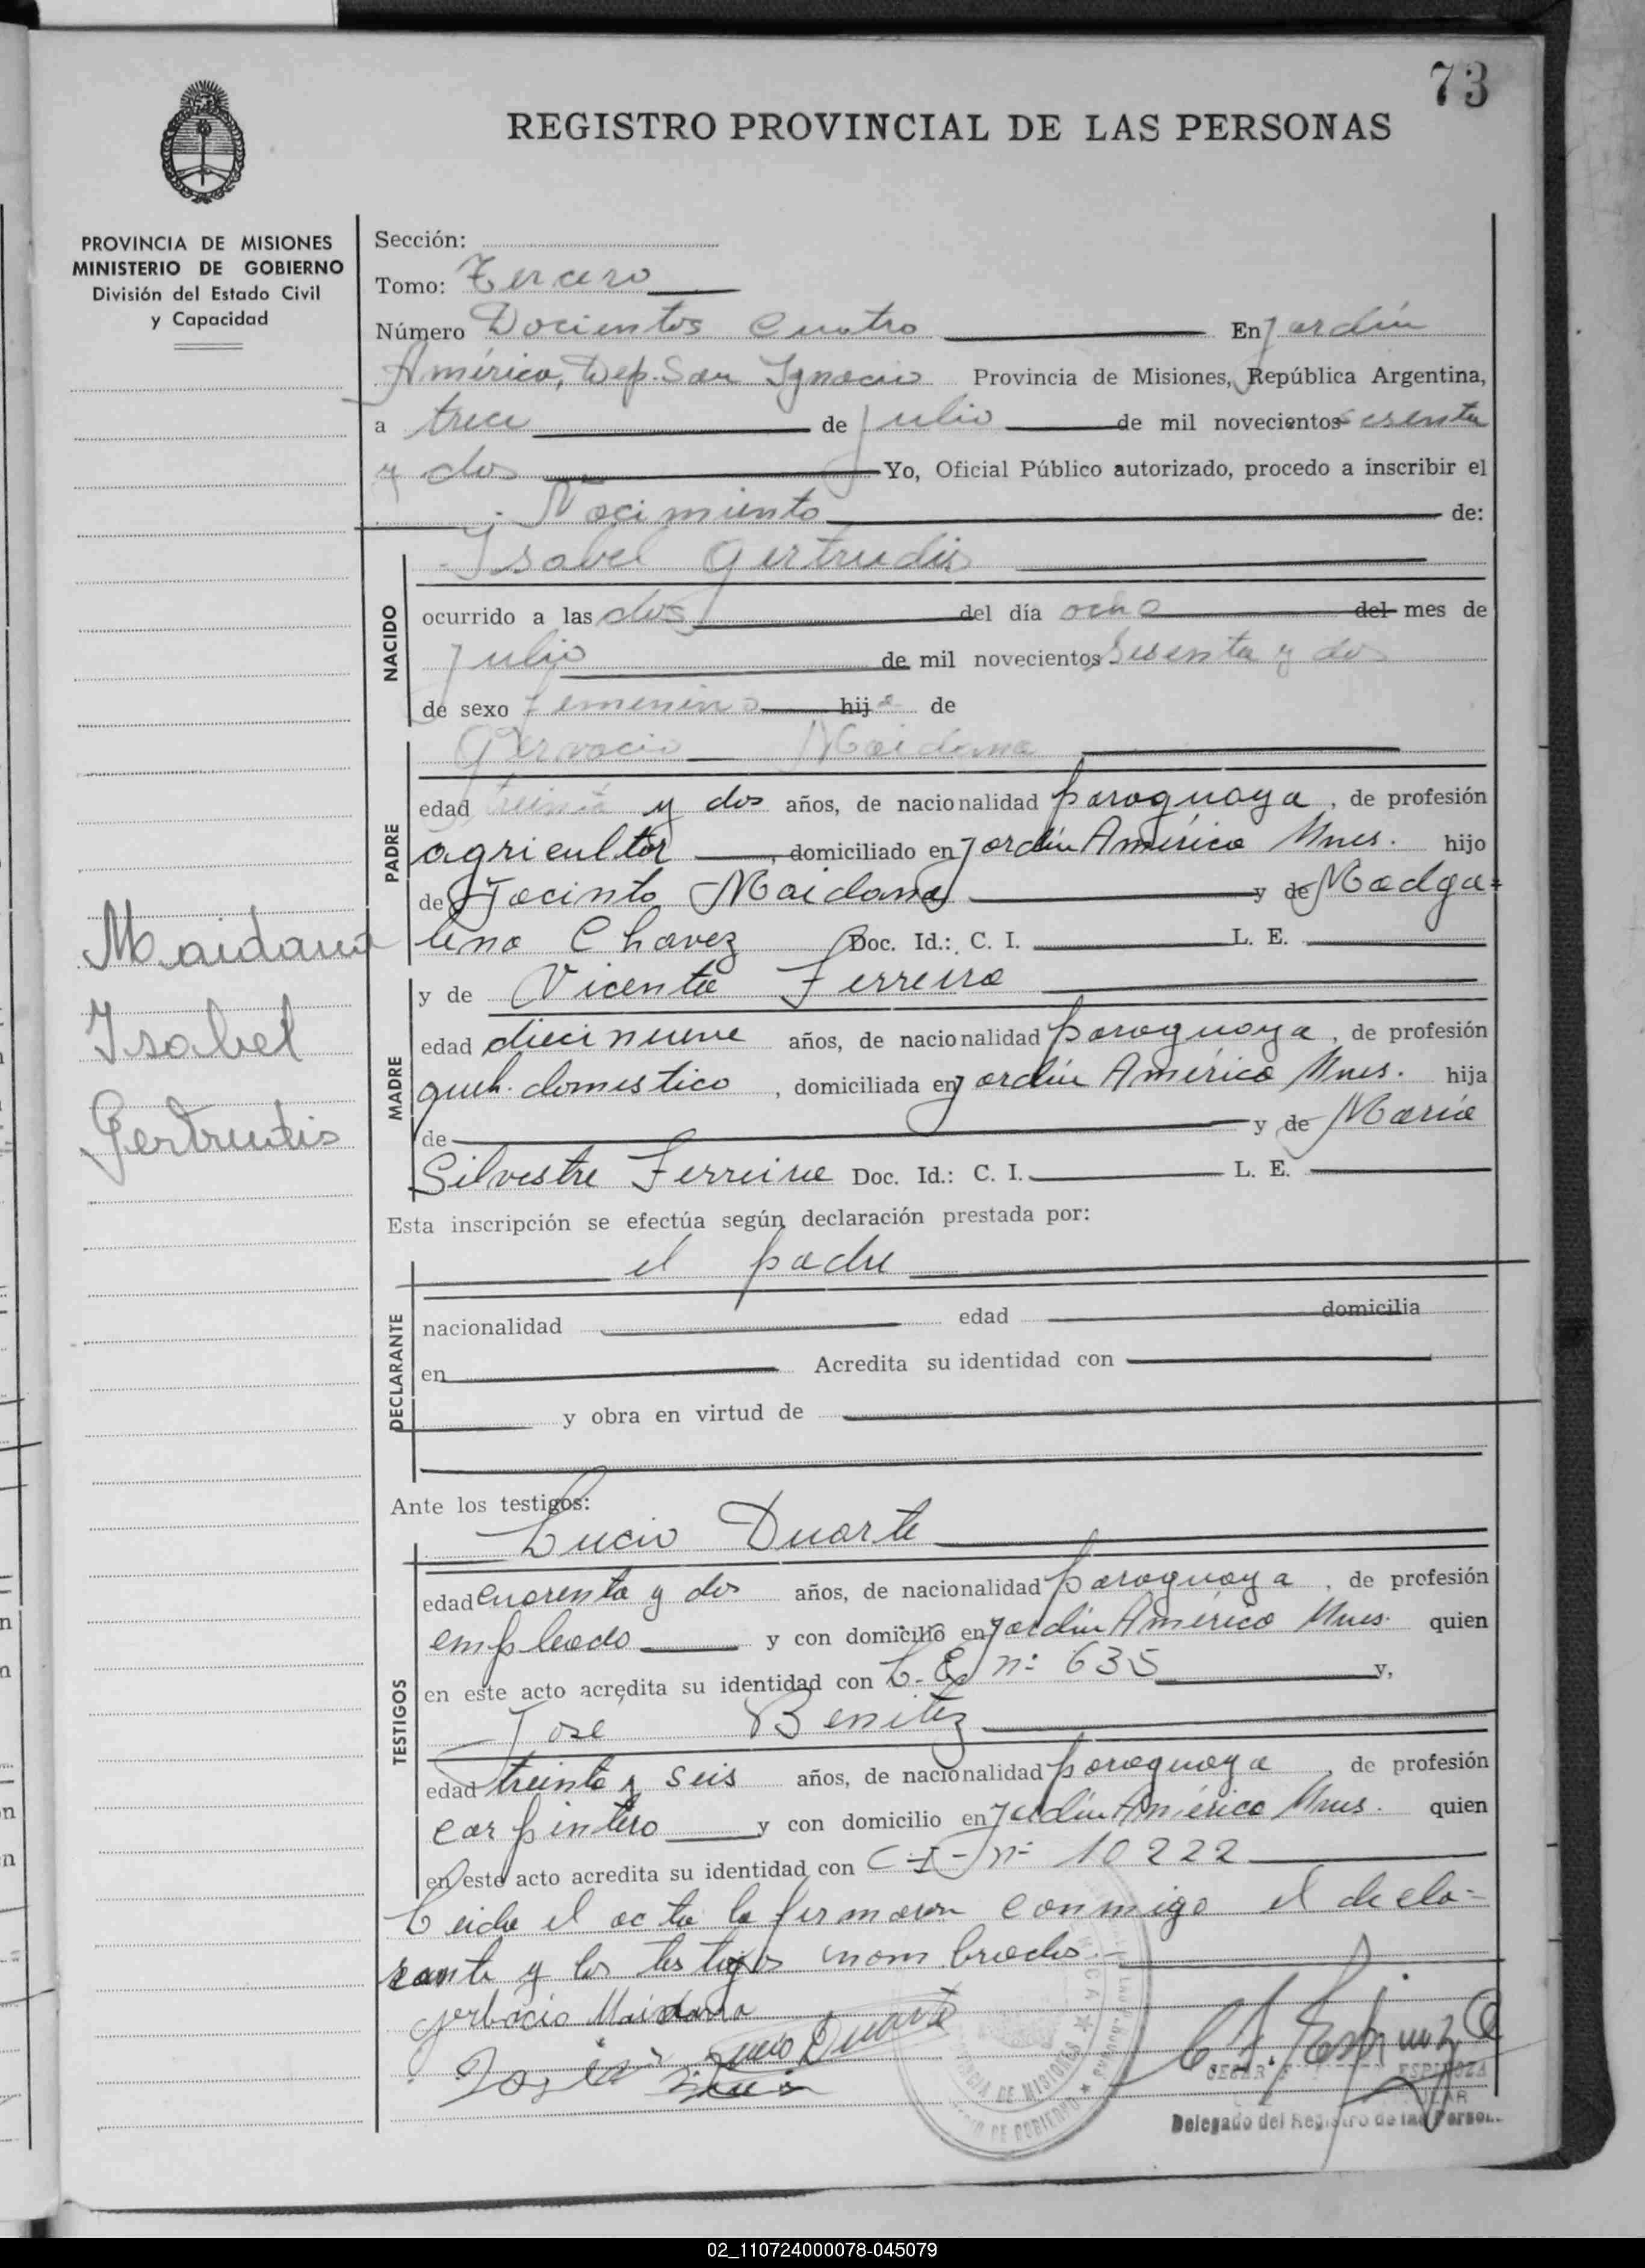 73
REGISTRO PROVINCIAL DE LAS PERSONAS
PROVINCIA DE MISIONES
MINISTERIO DE GOBIERNO
División del Estado Civil
y Capacidad
Sección:
Tomo: Tercero
Número Docientos Cuatro En Jardín
América, Dep. San Ignacio Provincia de Misiones, República Argentina,
a trece de julio de mil novecientos sesenta
y dos Yo, Oficial Público autorizado, procedo a inscribir el
Nacimiento de:
Isabel Gertrudis
NACIDO
ocurrido a las dos del día ocho del mes de
Julio de mil novecientos Sesenta y dos
de sexo femenino hija de
Gervacio Maidana
PADRE
edad treinta y dos años, de nacionalidad paraguaya, de profesión
agricultor, domiciliado en Jardín América Mnes. hijo
de Jacinto Maidana y de Madga=
lena Chavez Doc. Id.: C. I. L. E.
Maidana
Isabel
Gertrudis
MADRE
y de Vicenta Ferreira
edad diecinueve años, de nacionalidad paraguaya, de profesión
queh. domestico, domiciliada en Jardín América Mnes. hija
de y de María
Silvestre Ferreira Doc. Id.: C. I. L. E.
Esta inscripción se efectúa según declaración prestada por:
el padre
DECLARANTE
nacionalidad edad domicilia
en Acredita su identidad con
y obra en virtud de
Ante los testigos:
Lucio Duarte
TESTIGOS
edad cuarenta y dos años, de nacionalidad paraguaya, de profesión
empleado y con domicilio en Jardín América Mnes. quien
en este acto acredita su identidad con L.E. nº 635 y,
José Benitez
edad treinta y seis años, de nacionalidad paraguaya, de profesión
carpintero y con domicilio en Jardín América Mnes. quien
en este acto acredita su identidad con C-I- nº 10222
Leida el acta la firmaron conmigo el decla=
rante y los testigos nombrados.-
Gerbacio Maidana
Lucio Duarte
CESAR ESPINOZA
Delegado del Registro de las Person
DE MISIONES
DE GOBIERNO
02_110724000078-045079